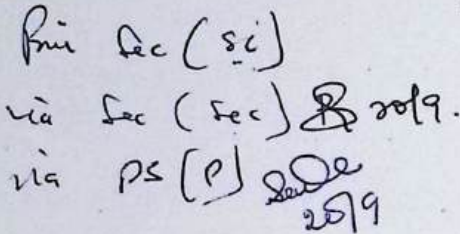 Prin Sec (SI)
via Sec (Sec) 20/9.
via PS (P)
20/9